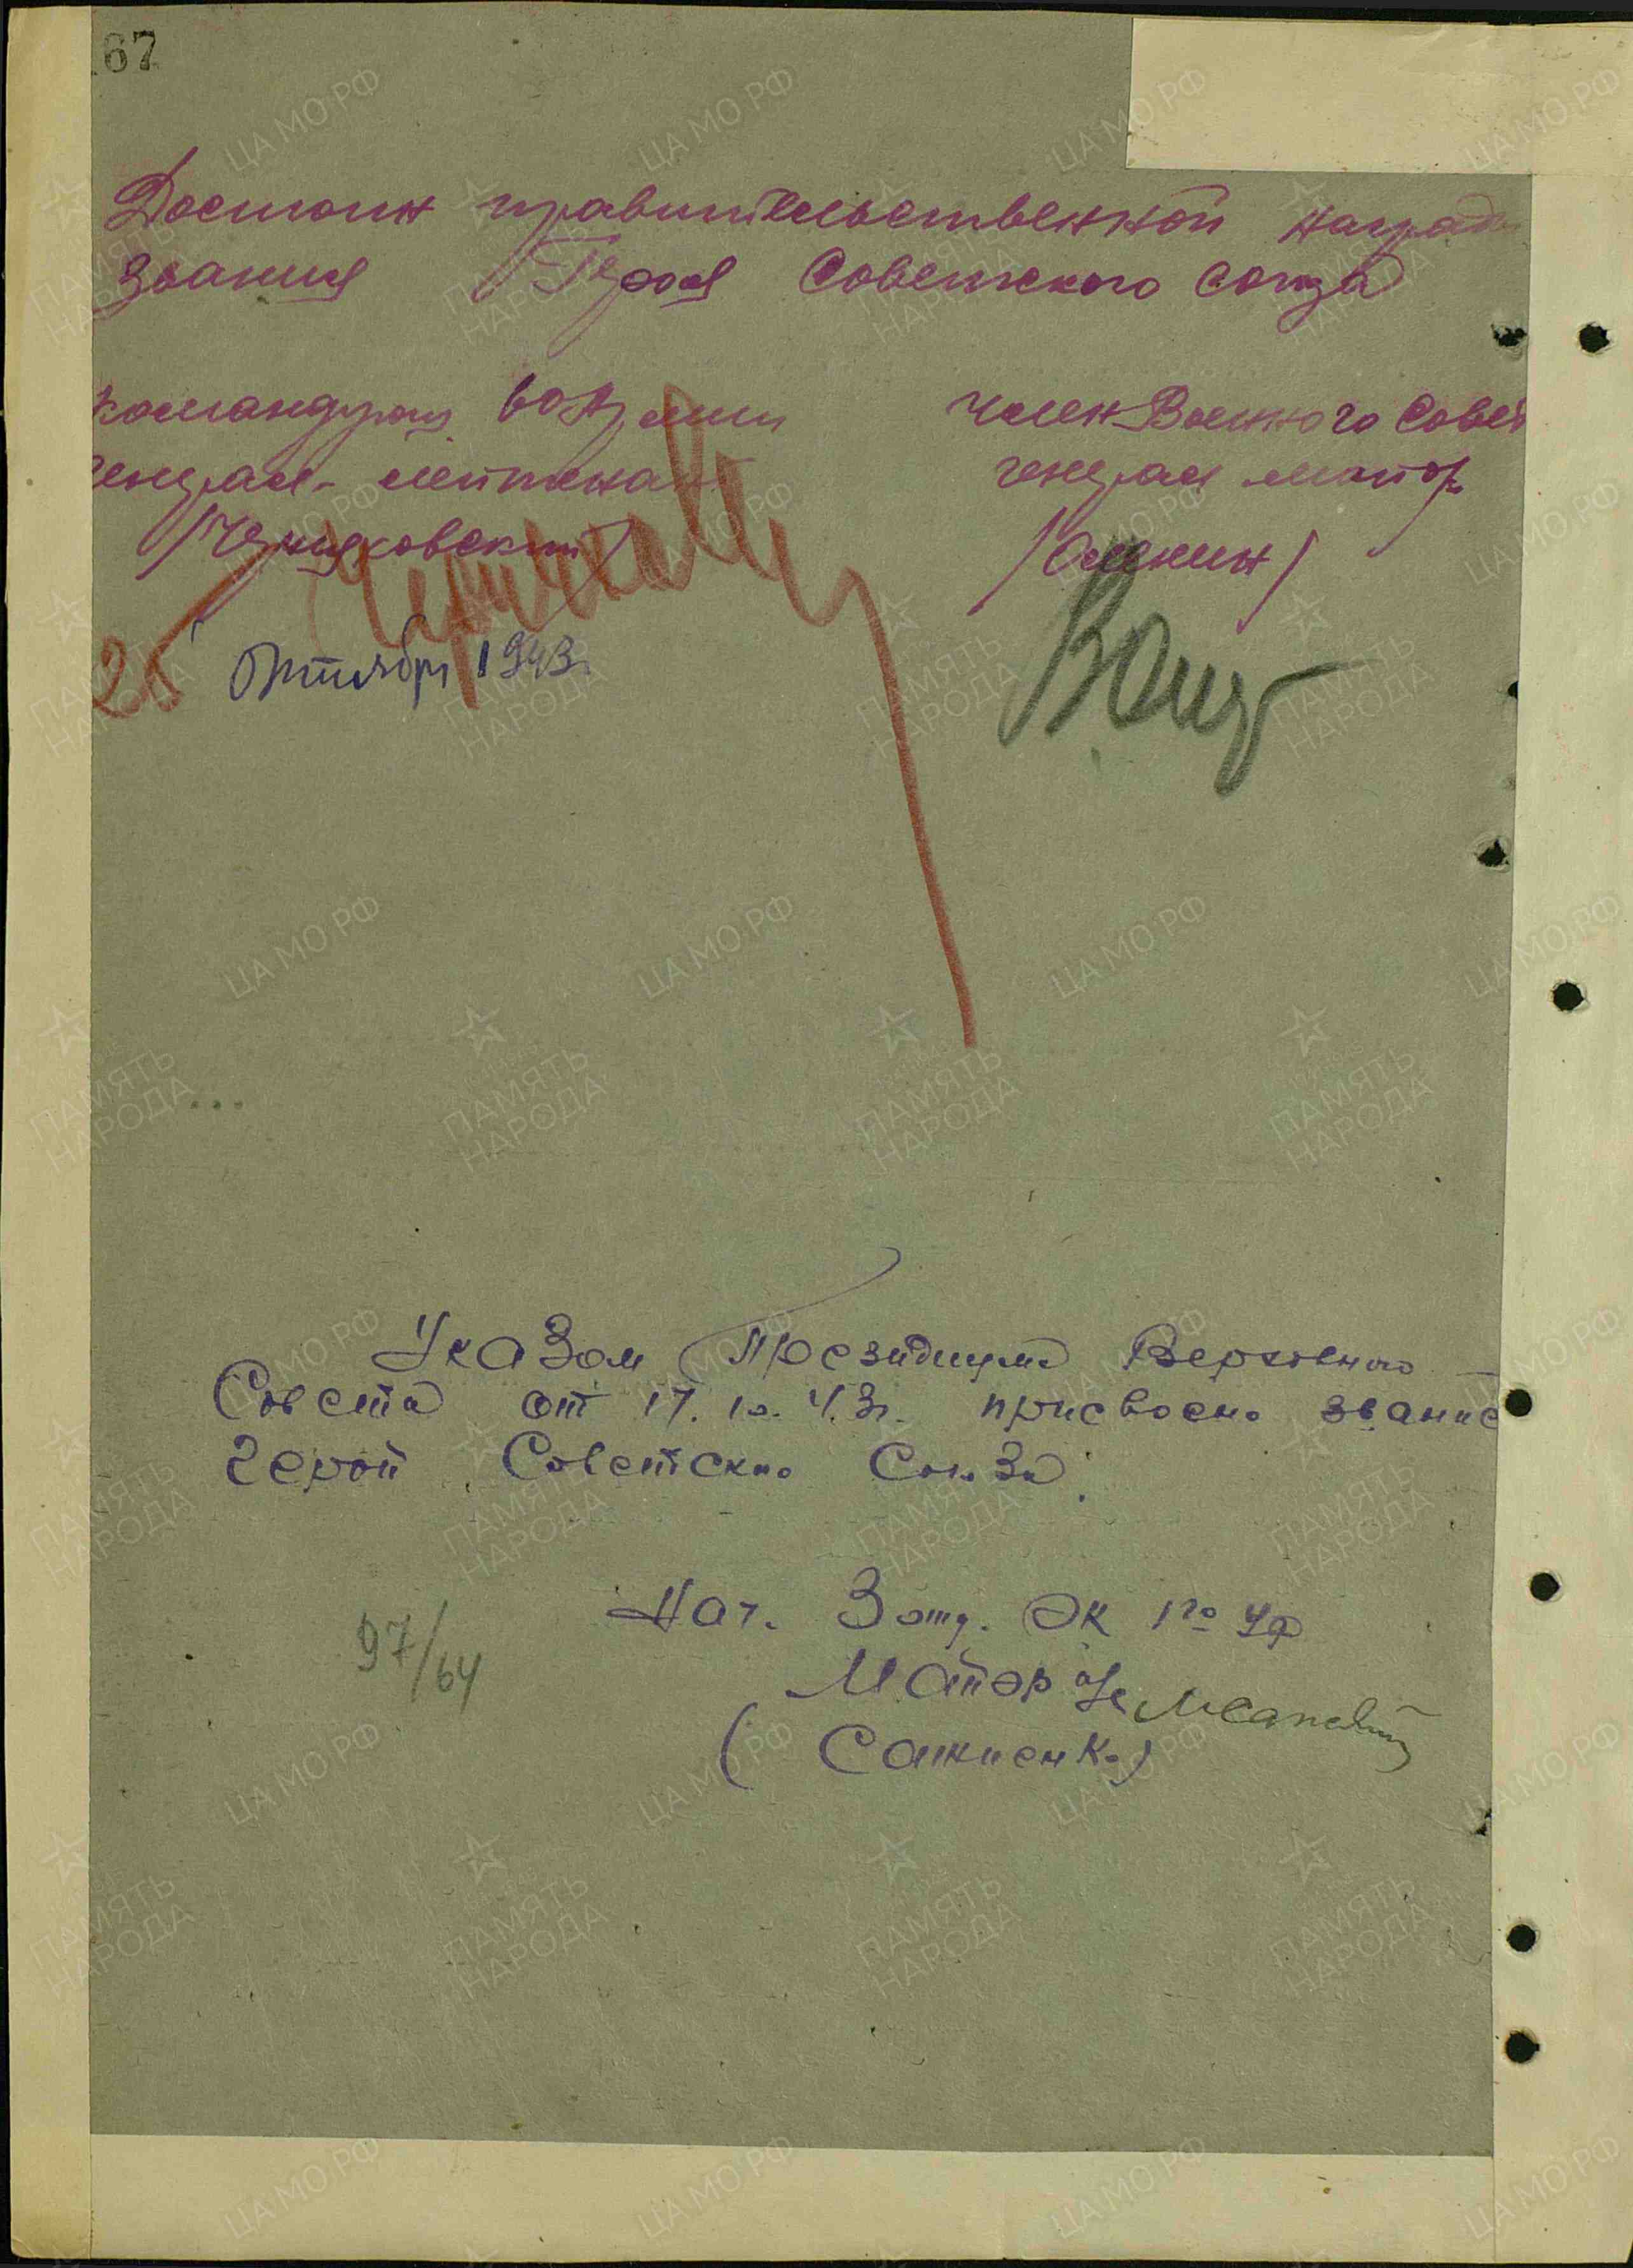 67
Достоин правительственной наград
звания Героя Советского Союза
командующ 60 Армии
генерал-лейтенант
/Черняховский/
член Военного Совет
генерал майор
/Оленин/
Октября 1943г.
Указом Президиума Верховного
Совета от 17.10.43г. присвоено звание
Герой Советского Союза.
Нач. 3 отд. ОК 1го УФ
Майор
97/64